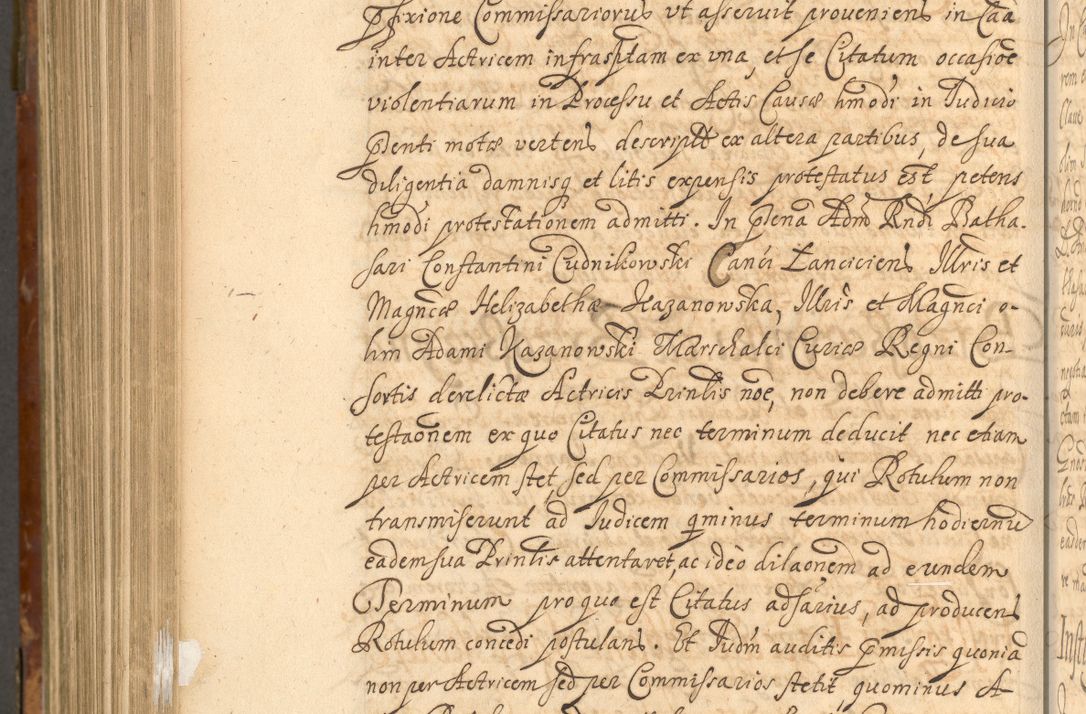 pfixione Commissariorus ut asseruit proveniens in Caa
inter Actricem infrasptam ex una, et se Citatum occasioe
violentiarum in Processu et Actis Causæ hmodi in Judicio
pnti motæ vertens descriptt ex altera partibus, de sua
diligentia damnisq et litis expensis protestatus est petens
hmodi protestationem admitti. In pñena Adm Rndi Batha-
sari Constantini Cudnikowski Canci Lanciciens Illris et
Magncæ Helizabethæ Kazanowska, Illris et Magnci o-
lim Adami Kazanowski Marschalci Curiæ Regni Con-
sortis derelictæ Actricis Prinlis noe, non debere admitti pro-
testaonem ex quo Citatus nec terminum deducit nec etiam
per Actricem stet, sed per Commissarios, qui Rotulum non
transmiserunt ad Judicem qminus terminum hodiernu
eadem sua Prinlis attentaret, ac ideo dilaonem ad eundem
Terminum pro quo est Citatus adsarius, ad producens
Rotulum concedi postulans. Et Judm auditis pmissis quonia
non per Actricem sed per Commissarios stetit quominus A-